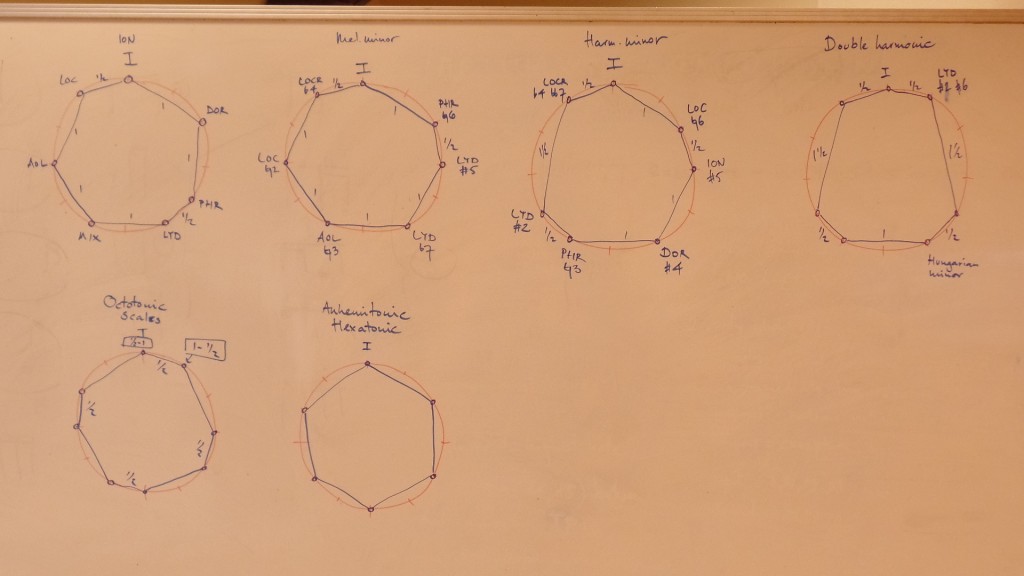 ION
I
LOC
½
1
DOR
1
1
AOL
PHR
½
1
1
MIX
LYD
Mel. minor
I
LOCR
♭4
½
1
PHR
♮6
½
1
LOC
♮2
LYD
#5
1
1
1
AOL
♮3
LYD
♭7
Harm. minor
I
LOCR
♭4 ♭♭7
½
1
LOC
♮6
½
1½
ION
#5
1
LYD
#2
½
1
PHR
♮3
DOR
#4
Double harmonic
I
½
½
LYD
#2 #6
1½
1½
½
1
½
Hungarian
minor
Octotonic
Scales
I
½-1
1-½
½
½
½
½
Anhemitonic
Hexatonic
I